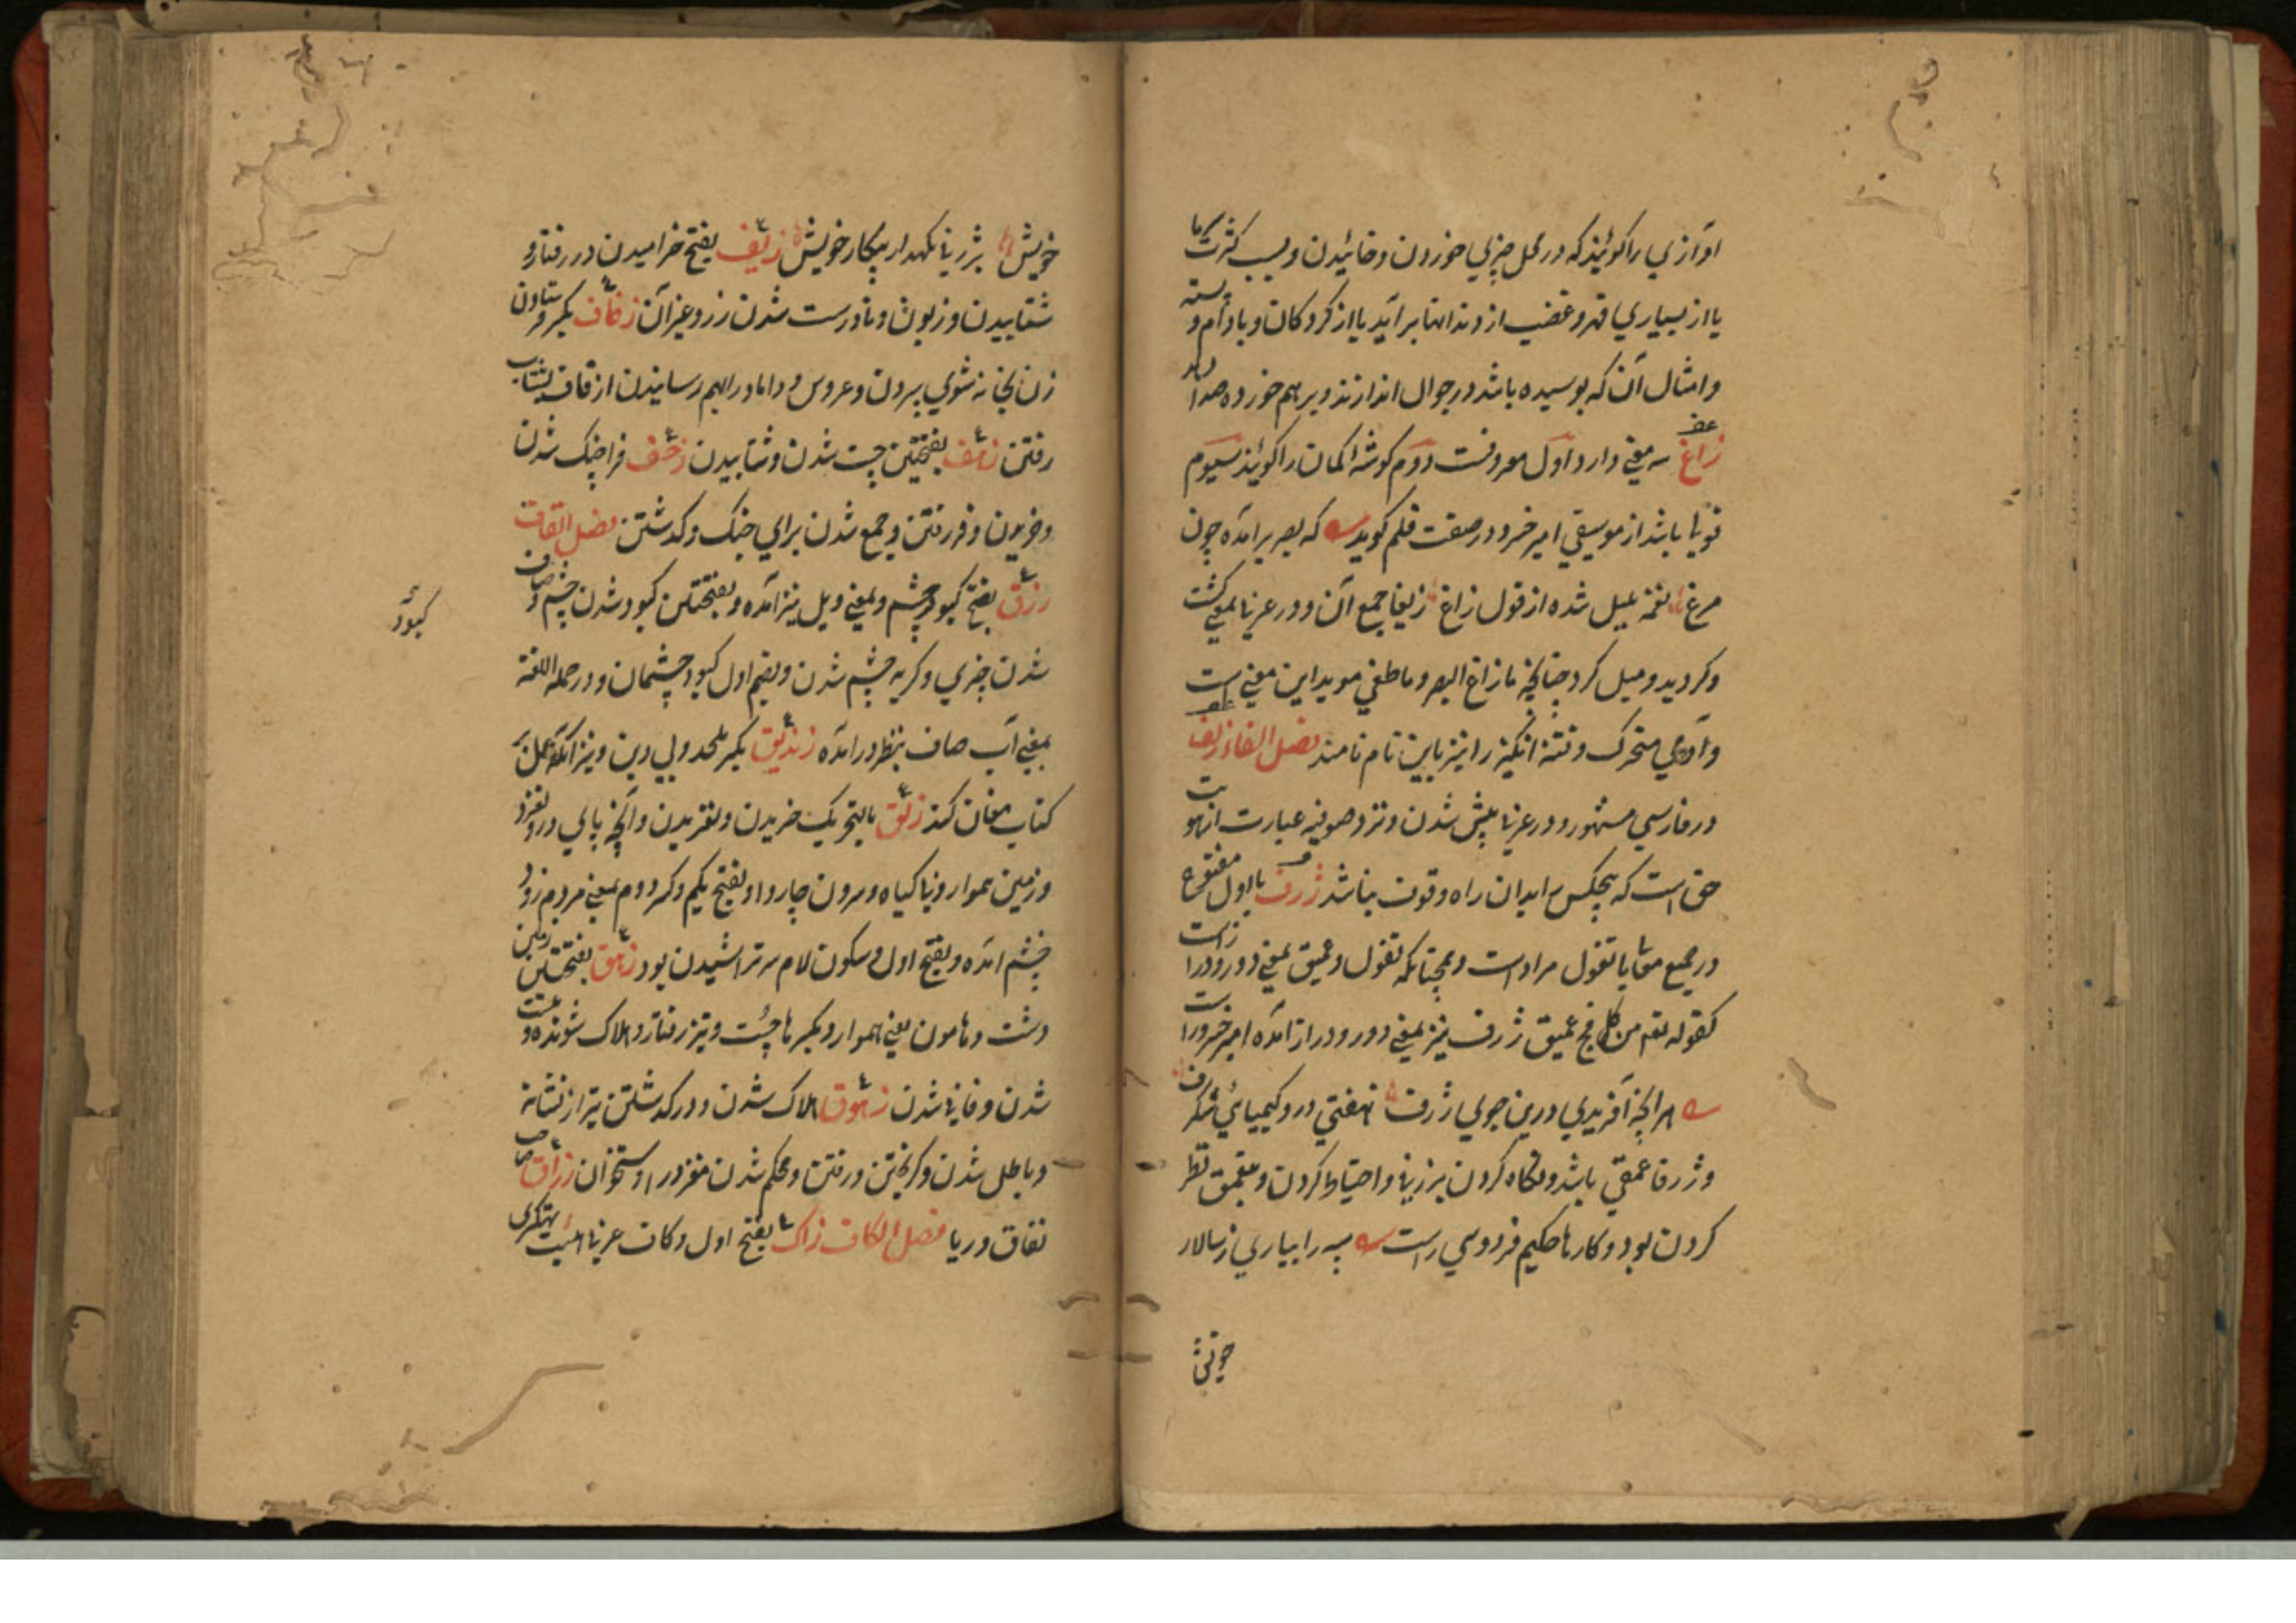 اوآزي را کویند که در محل چیزي خوردن و خائیدن و بسبب کثرت
یا از بسیاري قهر و غضب از دندانها برآید یا از کردکان و بادام و پسته
و امثال آن که بوسیده باشد در جوال اندازند و بر هم خورده صدا دهد
زاغ سه معني دارد اول معروفست دوم کوشه کمان را کویند سیوم
قولي باشد از موسیقي امیر خسرو در صفت قلم کوید که بصریر آمده چون
مرغ نغمه بلبل شده از قول زاغ زیغا جمع آن و در عربي بمعني کشت
و کردید و میل کرد چنانچه ما زاغ البصر و ما طغي موید این معني است
و آدمي متحرک و فتنه انکیز را نیز باین نام نامند فصل الفاء زلف
در فارسي مشهور و در عربي پیش شدن و نزد صوفیه عبارت از هویت
حق است که هیچکس را بدان راه وقوف نباشد ژرف با اول مفتوح
در جمیع معاني با تغول مرادف است و همچنانکه تغول و عمیق بمعني دور و دراز است
کقوله تعم من کل فج عمیق ژرف نیز بمعني دور و دراز آمده امیر خسرو راست
هر انچه آفریدي درین جوي ژرف نهفتي درو کیمیائي شکرف
و ژرفا عمقي باشد و نکاه کردن بژرفي و احتیاط کردن و بتعمق نظر
کردن بود و کارها حکیم فردوسي راست سپه را بیاري ز سالار
خویش بژرفي نکهدار پیکار خویش زیف بفتح خرامیدن در رفتار و
شتابیدن و زبون و نادرست شدن زر و غیر آن زفاف بکسر فرستادن
زن بخانه شوي بردن و عروس و داماد را بهم رسانیدن از قاف بشتاب
رفتن زهف بفتحتین چست شدن و شتابیدن زحف فرا جنک شدن
و خزیدن و فرو رفتن و جمع شدن براي جنک و کدشتن فصل القاف
زرق بفتح کبود چشم و بمعني ویل نیز آمده و بفتحتین کبود شدن چشم و صاف
کبود
شدن چیزي و کربه چشم شدن و بضم اول کبود چشمان و در جمله اللغة
بمعني آب صاف بنظر درآمده زندیق بکسر ملحد و بي دین و نیز آنکه عمل بر
کتاب مغان کند زلق بالتحریک خزیدن و لغزیدن و آنچه پاي درو لغزد
و زمین هموار و بي کیاه و سرون چاروا و بفتح یکم و کسر دوم بمعني مردم زود
خشم آمده و بفتح اول و سکون لام سر تراشیدن بود زهق بفتحتین زمین
دشت و هامون یعني هموار و بکسر ها چست و تیز رفتار و هلاک شونده و نیست
شدن و فاني شدن زهوق هلاک شدن و در کدشتن تیر از نشانه
و باطل شدن و کریختن و رفتن و محکم شدن مغز در استخوان زراق صاحب
نفاق و ریا فصل الکاف زاک بفتح اول و کاف عربي
چونی